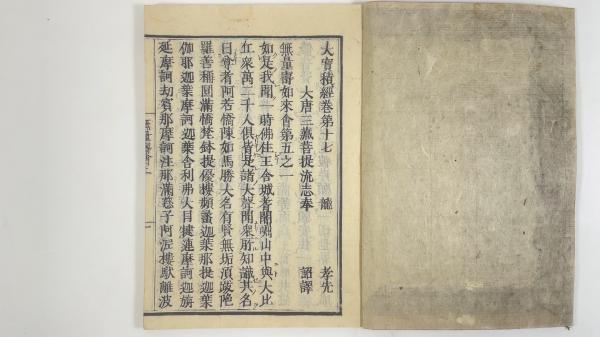 大寶積經卷第十七 龍 孝先
大唐三藏菩提流志奉 詔譯
無量壽如來會第五之一
如是我聞一時佛住王舍城耆闍崛山中與大比
丘衆萬二千人俱皆是諸大聲聞衆所知識其名
曰尊者阿若憍陳如馬勝大名有賢無垢須跋陀
羅善稱圓滿憍梵鉢提優樓頻蠡迦葉那提迦葉
伽耶迦葉摩訶迦葉舍利弗大目揵連摩訶迦旃
延摩訶劫賓那摩訶注那滿慈子阿泥樓馱離波